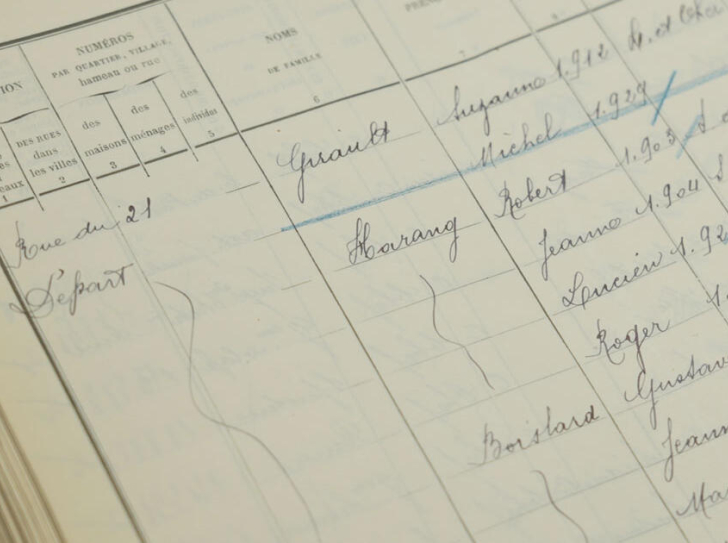 ION
NUMÉROS
PAR QUARTIER, VILLAGE,
hameau ou rue
NOMS
DE FAMILLE
DES RUES
dans
les villes
des
maisons
des
ménages
des
individus
eaux
1 2 3 4 5 6 7
Girault Suzanne 1.912
Michel 1.929
Rue du 21 Harang Robert 1.903
Départ Jeanne 1.904
Lucien 1.92
Roger 1.
Boislard Gustav
Jeann
Ma